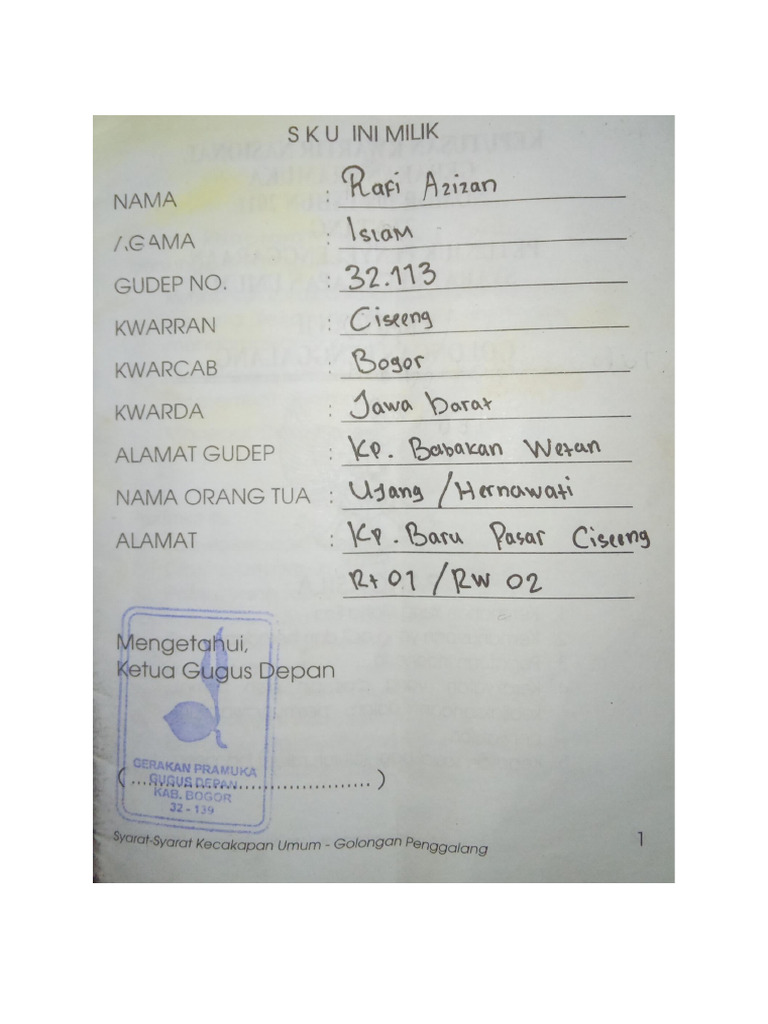 SKU INI MILIK
NAMA : Rafi Azizan
AGAMA : Islam
GUDEP NO. : 32.113
KWARRAN : Ciseeng
KWARCAB : Bogor
KWARDA : Jawa barat
ALAMAT GUDEP : Kp. Babakan Wetan
NAMA ORANG TUA : Ujang / Hernawati
ALAMAT : Kp. Baru Pasar Ciseeng
Rt 01 / RW 02
Mengetahui,
Ketua Gugus Depan
GERAKAN PRAMUKA
GUGUS DEPAN
KAB. BOGOR
32 - 139
(....................................)
Syarat-Syarat Kecakapan Umum - Golongan Penggalang
1